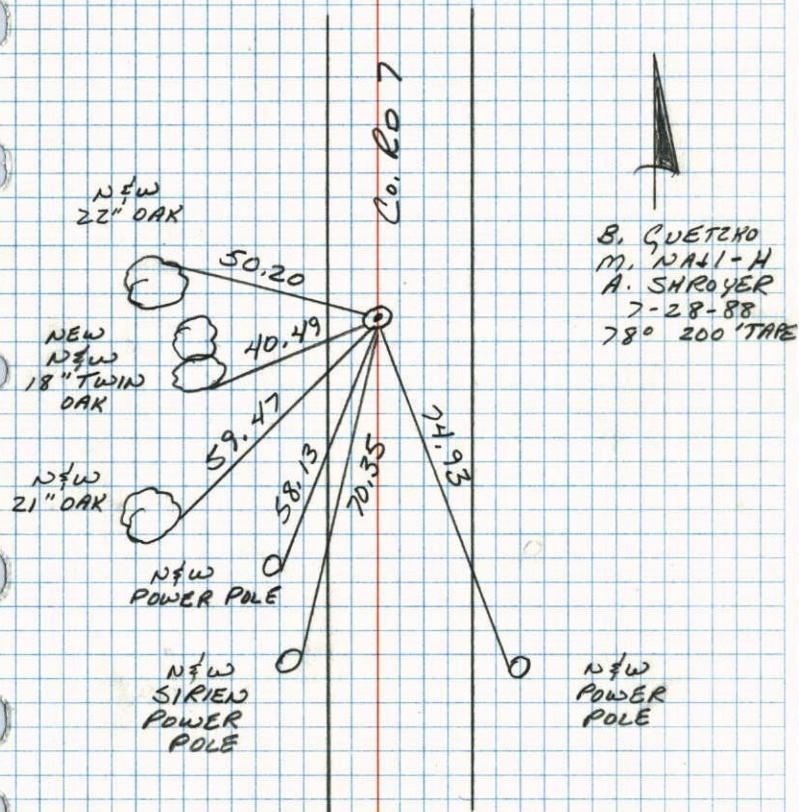 Co. RD 7
N&W
22" OAK
50.20
B. GUETZKO
M. NAll-H
A. SHROYER
7-28-88
78° 200' TAPE
NEW
N&W
18" TWIN
OAK
40.49
59.47
N&W
21" OAK
58.13
70.35
74.93
N&W
POWER POLE
N&W
SIRIEN
POWER
POLE
N&W
POWER
POLE